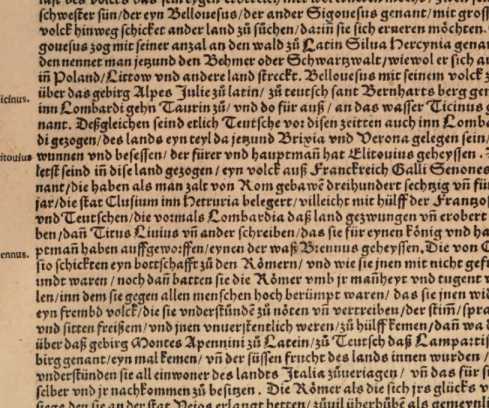 schwester sün/der eyn Bellouesus/der ander Sigouesus genant/mit gross
volck hinweg schicket ander land zů sůchen/dariñ sie sich erneren möchten.
gouesus zog mit seiner anzal an den wald zů Latin Silua Hercynia genan
den nennet man jetzund den Bohmer oder Schwartzwalt/wiewol er sich an
iñ Poland/Littow vnd andere land streckt. Bellouesus mit seinem volck z
icinus. über das gebirg Alpes Julie zů latin/zů teutsch sant Bernharts berg gen
inn Lombardi gehn Taurin zů/vnd do für auß/an das wasser Ticinus g
nant. Deßgleichen seind etlich Teutsche vor disen zeitten auch inn Lomba
di gezogen/des lands eyn teyl da jetzund Brixia vnd Verona gelegen sein/
itouius wunnen vnd besessen/der fürer vnd hauptmañ hat Elitouius geheyssen.
letst seind iñ dise land gezogen/eyn volck auß Franckreich Galli Senones
nant/die haben als man zalt von Rom gebawẽ dreihundert sechtzig vñ für
jar/die stat Clusium inn Hetruria belegert/villeicht mit hülff der Frantzo
vnd Teutschen/die vormals Lombardia daß land gezwungen vñ erobert
ben/dañ Titus Liuius vñ ander schreiben/das sie für eynen König vnd ha
ennus. ptmañ haben auffgeworffen/eynen der waß Brennus geheyssen. Die von C
sio schickten eyn bottschafft zů den Römern/vnd wie sie jnen mit nicht gef
undt waren/noch dañ batten sie die Römer vmb jr mañheyt vnd tugent w
len/inn dem sie gegen allen menschen hoch berümpt waren/das sie jnen wid
eyn frembd volck/die sie vnderstünde zů nöten vñ vertreiben/der stim̃/spra
vnd sitten freißem/vnd jnen vnuerstentlich weren/zů hülff kemen/dañ wa d
über daß gebirg Montes Apennini zů Latein/zů Teutsch daß Lampartis
birg genant/eyn mal kemen/vñ der süssen frucht des lands innen wurden/
vnderstünden sie all einwoner des landts Italia zůueriagen/vñ das für si
selber vnd jr nachkommen zů besitzen. Die Römer als die sich jrs glücks v